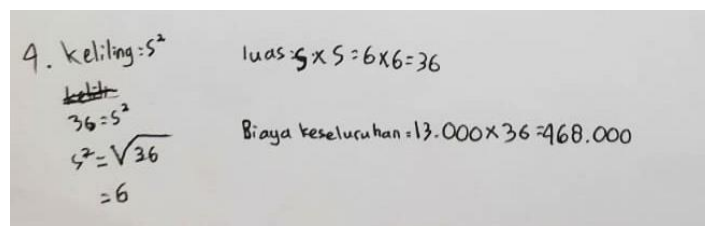 4. keliling = s²
36 = s²
s² = √36
= 6
luas = s × s = 6 × 6 = 36
Biaya keseluruhan = 13.000 × 36 = 468.000